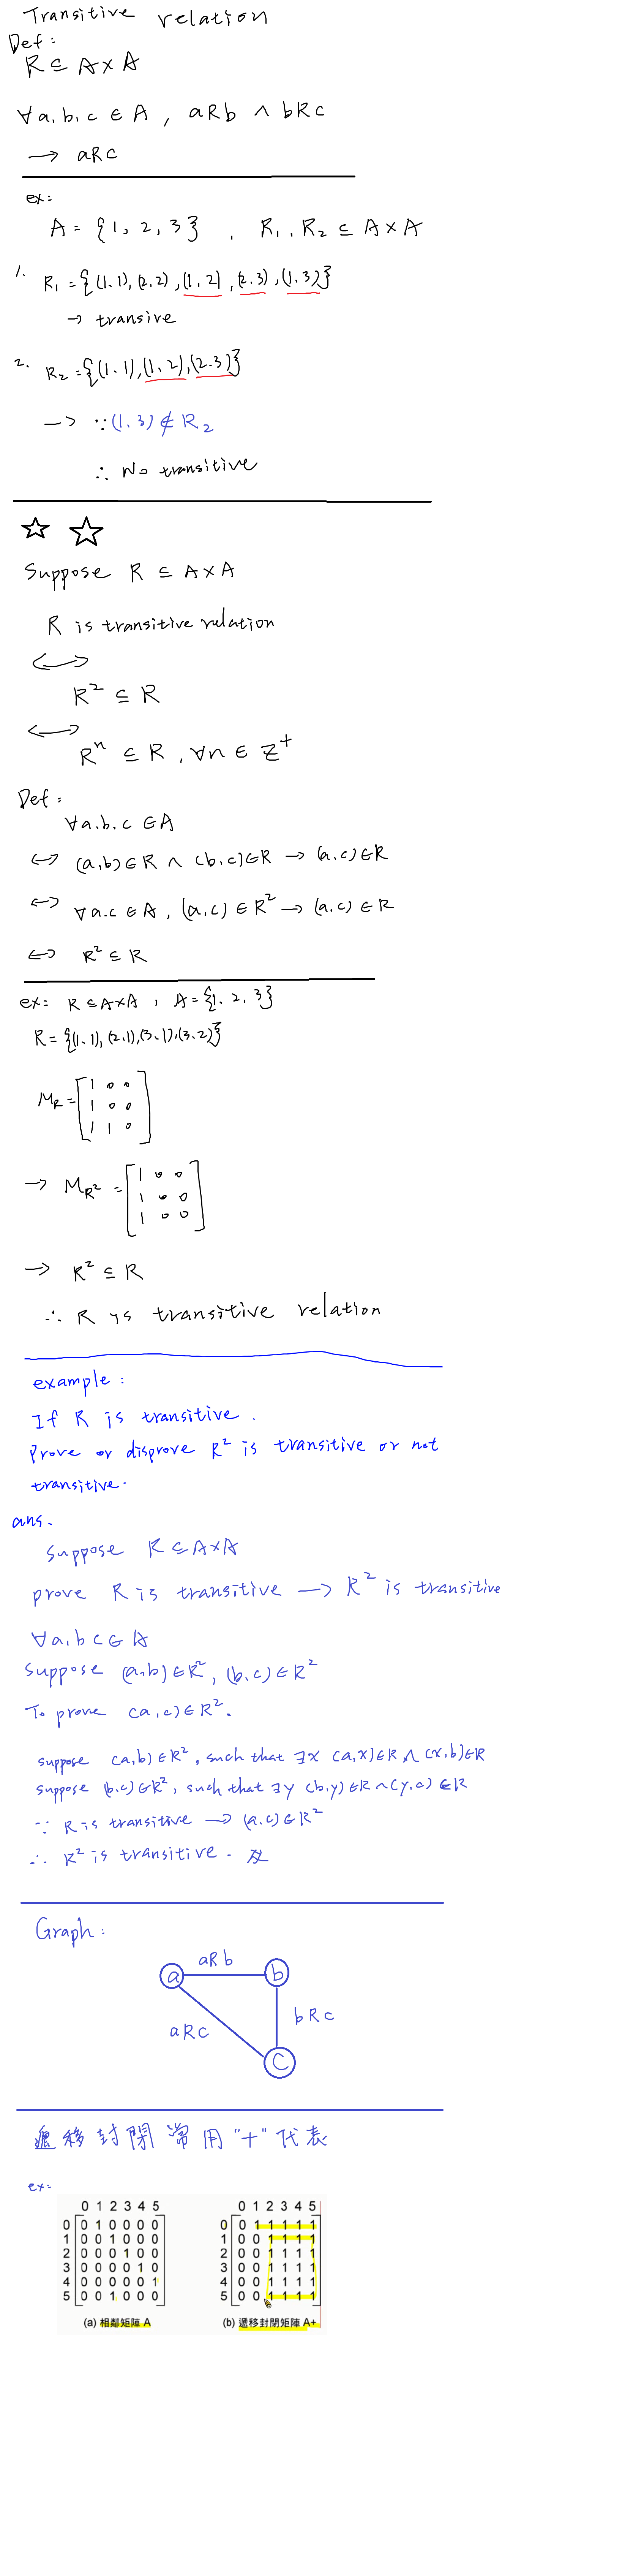 Transitive relation
Def:
R ⊆ A×A
∀a,b,c ∈ A, aRb ∧ bRc
→ aRc
ex:
A = {1, 2, 3}, R₁, R₂ ⊆ A×A
1. R₁ = {(1,1),(2,2),(1,2),(2,3),(1,3)}
→ transive
2. R₂ = {(1,1),(1,2),(2,3)}
→ ∵ (1,3) ∉ R₂
∴ No transitive
Suppose R ⊆ A×A
R is transitive relation
↔
R² ⊆ R
↔
Rⁿ ⊆ R, ∀n ∈ Z⁺
Def:
∀a,b,c ∈ A
↔ (a,b)∈R ∧ (b,c)∈R → (a,c)∈R
↔ ∀a,c ∈ A, (a,c) ∈ R² → (a,c) ∈ R
↔ R² ⊆ R
ex: R ⊆ A×A, A = {1, 2, 3}
R = {(1,1),(2,1),(3,1),(3,2)}
M_R = [1 0 0
1 0 0
1 1 0]
→ M_R² = [1 0 0
1 0 0
1 0 0]
→ R² ⊆ R
∴ R is transitive relation
example:
If R is transitive.
Prove or disprove R² is transitive or not
transitive.
ans.
suppose R ⊆ A×A
prove R is transitive → R² is transitive
∀a,b c ∈ A
suppose (a,b) ∈ R², (b,c) ∈ R²
To prove (a,c) ∈ R².
suppose (a,b) ∈ R², such that ∃x (a,x)∈R ∧ (x,b)∈R
suppose (b,c) ∈ R², such that ∃y (b,y)∈R ∧ (y,c) ∈ R
∵ R is transitive → (a,c) ∈ R²
∴ R² is transitive.
Graph:
aRb
a b
aRc bRc
C
遞移封閉常用"+"代表
ex:
0 1 2 3 4 5
0 0 1 0 0 0 0
1 0 0 1 0 0 0
2 0 0 0 1 0 0
3 0 0 0 0 1 0
4 0 0 0 0 0 1
5 0 0 1 0 0 0
(a) 相鄰矩陣 A
0 1 2 3 4 5
0 0 1 1 1 1 1
1 0 0 1 1 1 1
2 0 0 1 1 1 1
3 0 0 1 1 1 1
4 0 0 1 1 1 1
5 0 0 1 1 1 1
(b) 遞移封閉矩陣 A+